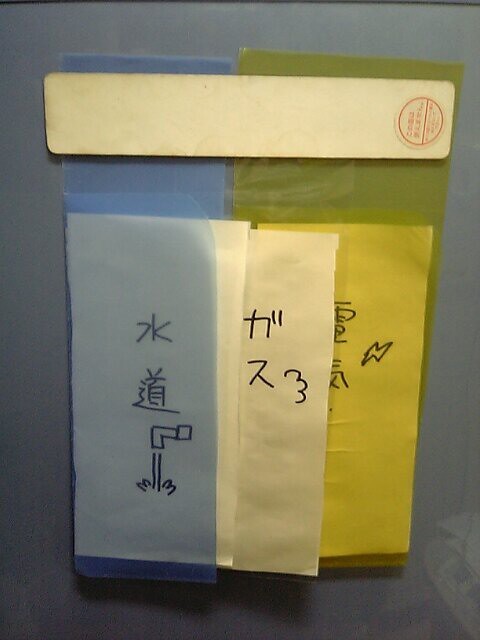 水道
ガス
電気